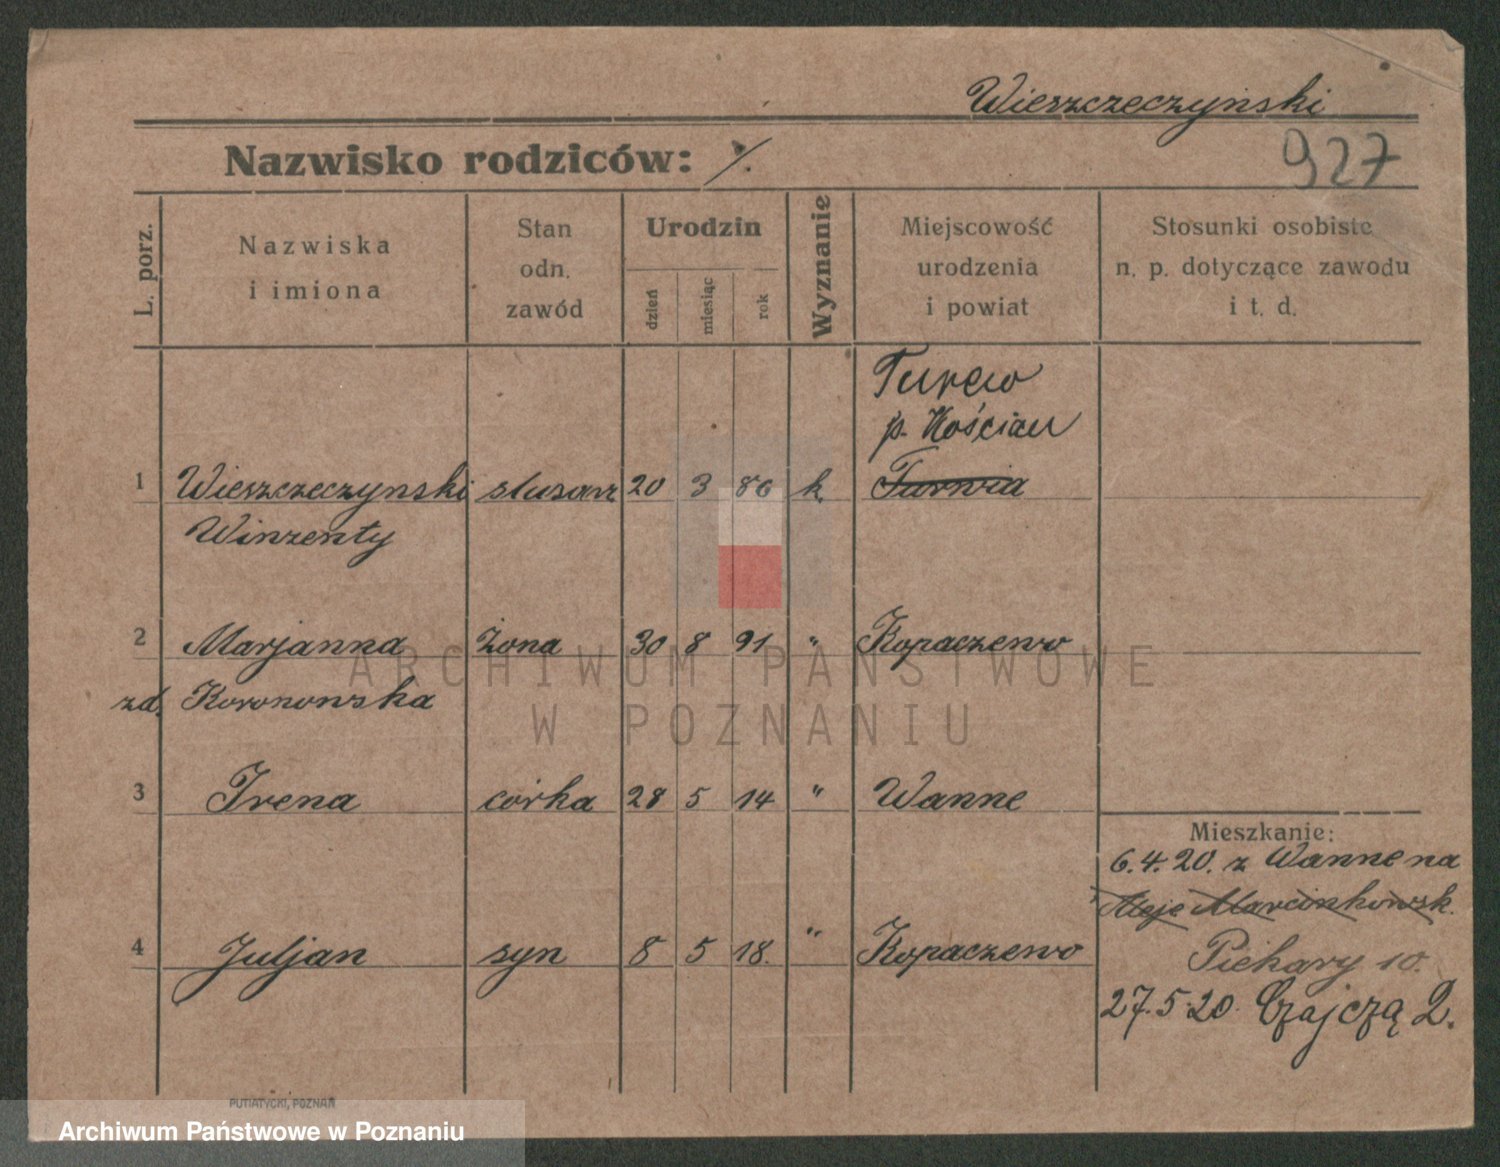 Wieszczeczyński
Nazwisko rodziców: ·/.
927
L. porz.
Nazwiska
i imiona
Stan
odn.
zawód
Urodzin
dzień
miesiąc
rok
Wyznanie
Miejscowość
urodzenia
i powiat
Stosunki osobiste
n. p. dotyczące zawodu
i t. d.
Turew
p. Kościan
1 Wieszczeczynski slusarz 20 3 86 k. Turwia
Winzenty
2 Marjanna żona 30 8 91 " Kopaczewo
zd. Koronowska
3 Irena córka 28 5 14 " Wanne
Mieszkanie:
6.4.20. z Wanne na
Aleje Marcinkowsk.
4 Juljan syn 8 5 18. " Kopaczewo
Piekary 10.
27.5.20. Czajczą 2.
PUTIATYCKI, POZNAŃ
ARCHIWUM PAŃSTWOWE
W POZNANIU
Archiwum Państwowe w Poznaniu